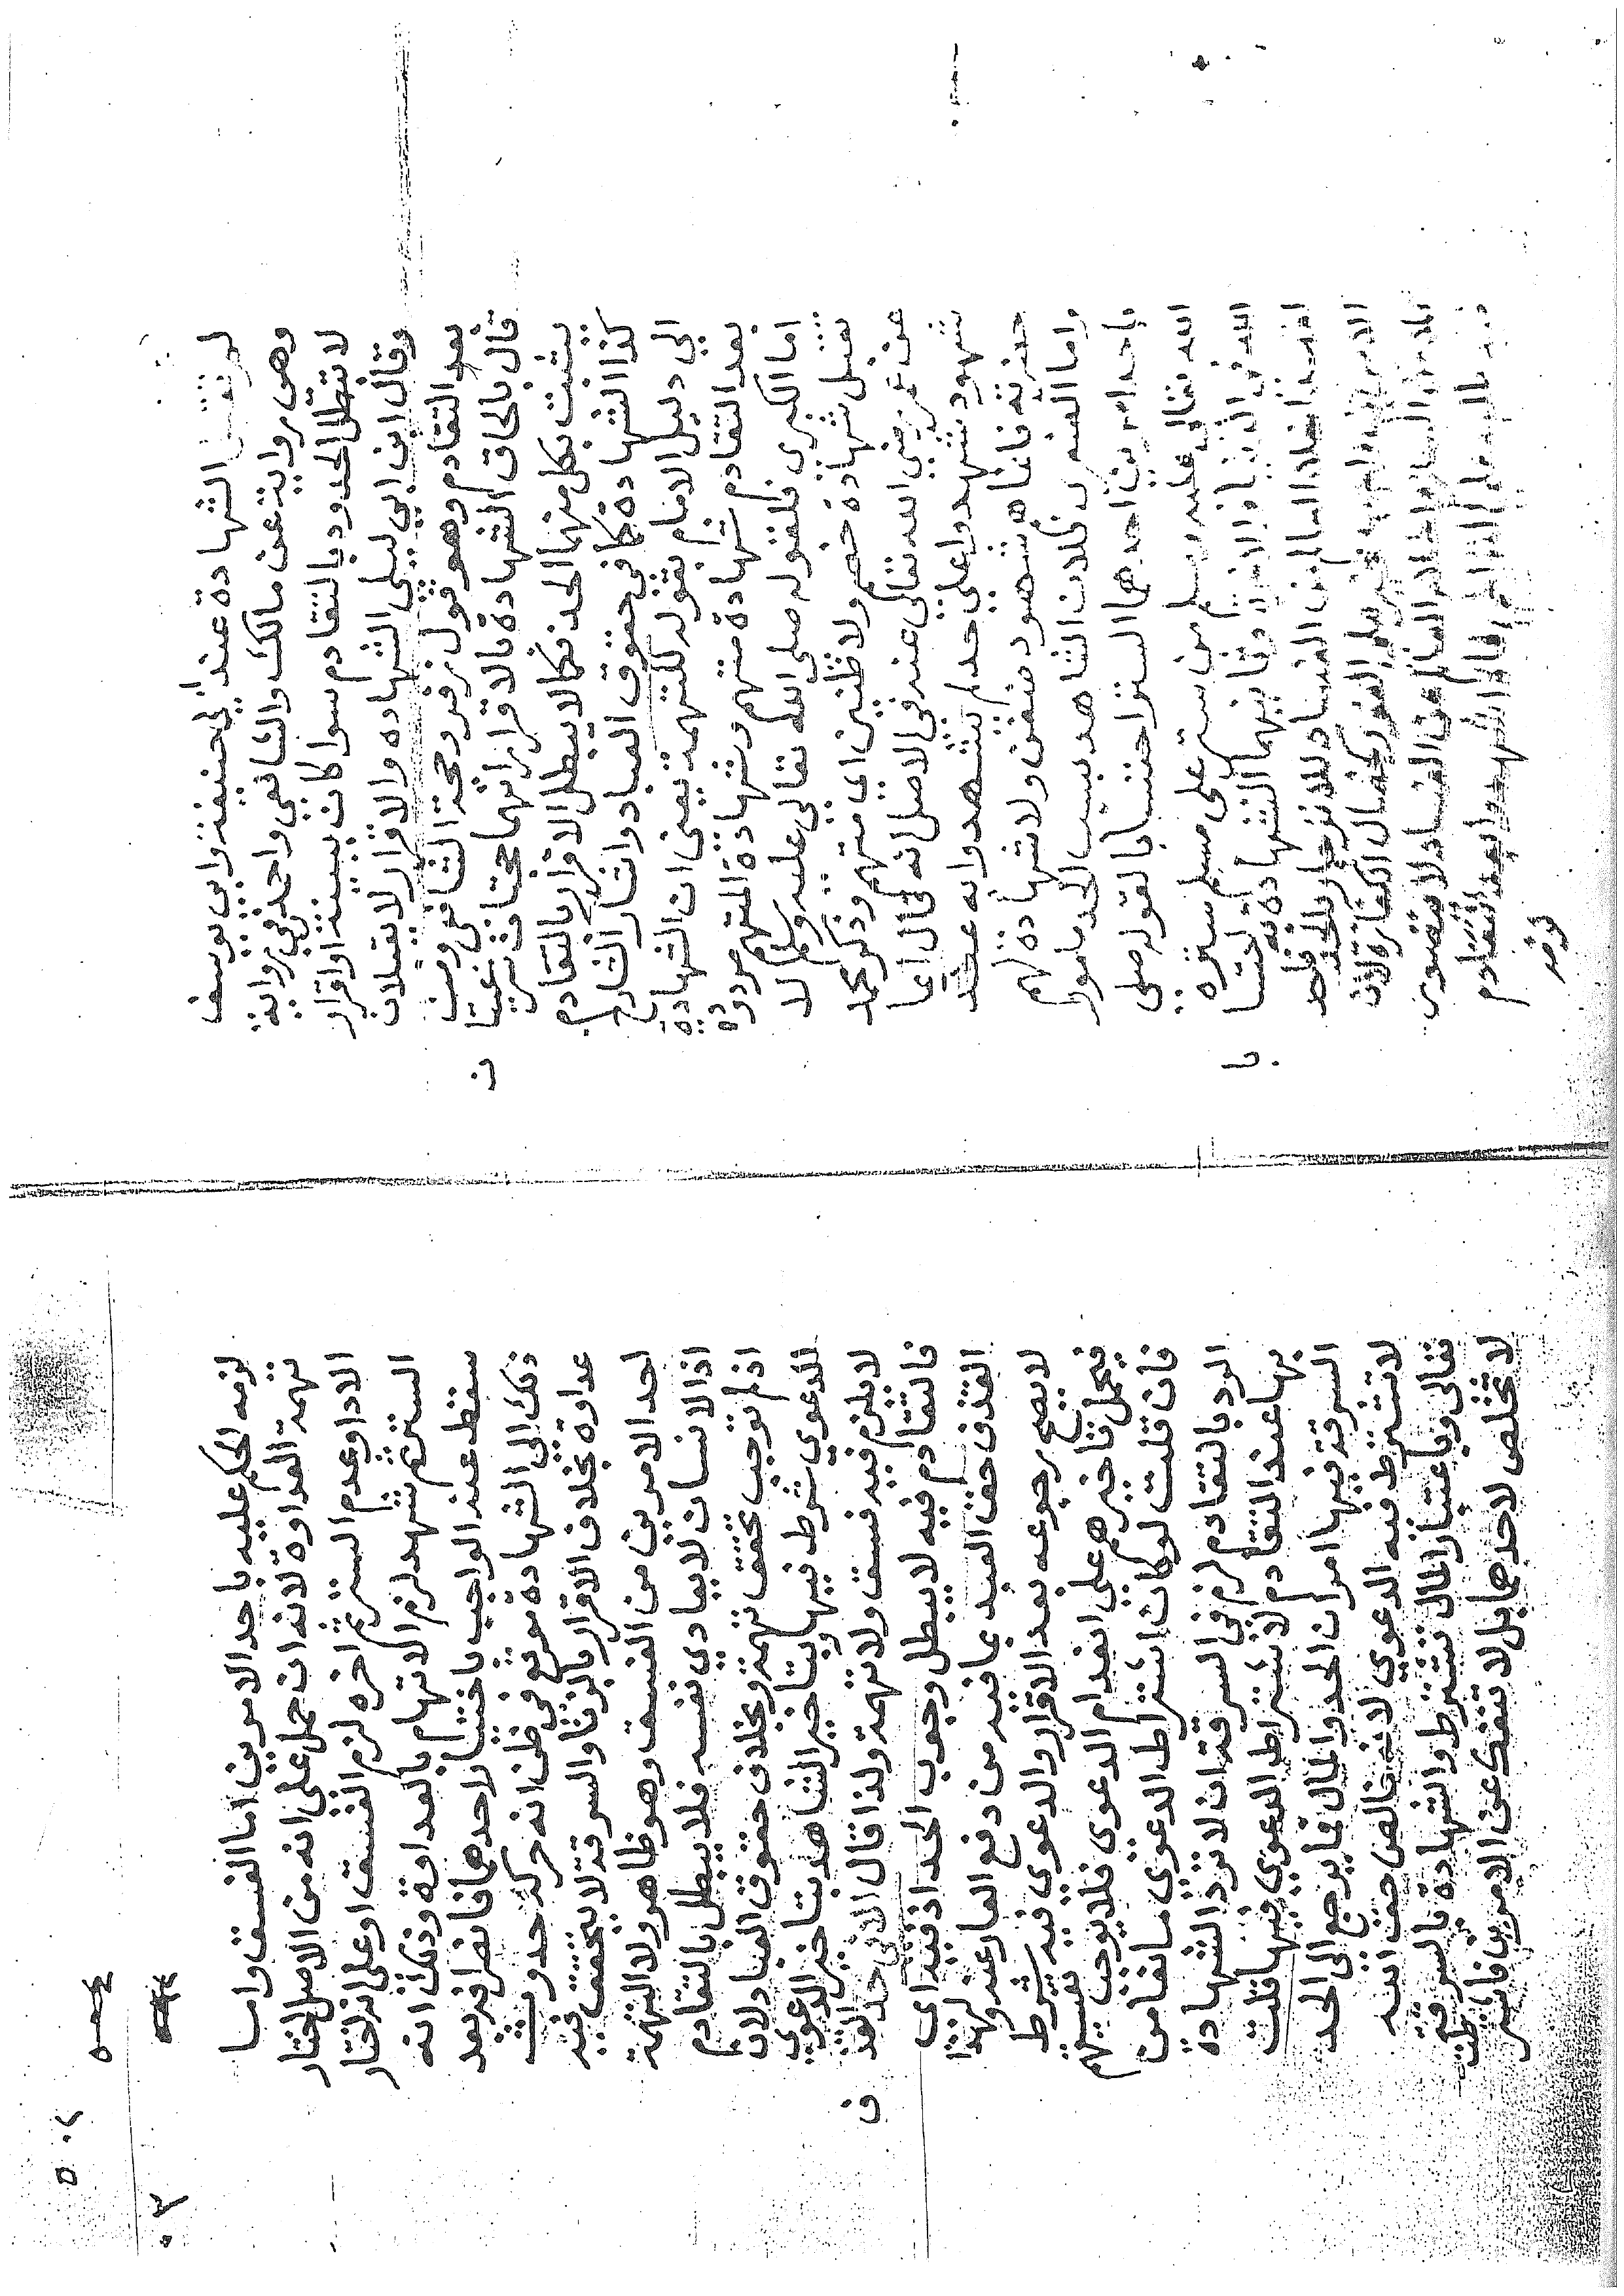 لم تقبل الشهادة عند ابي حنيفة وابي يوسف
وهى رواية عن مالك والشافعي واحمد في رواية
لا تبطل الحدود بالتقادم سوا كان ببينة او اقرار
وقال ابن ابي ليلى الشهاده والاقرار لا يقبلان
بعد التقادم وهو قول زفر وحجة الشافعي ومن
قال بالحاق الشهادة بالاقرار انهما حجتان شرعيتا
ن
يثبت بكل منهما الحد فكما لا يبطل الاقرار بالتقادم
كذا الشهادة كما في حقوق العباد واشار الشارح
الى دليل الامام بقوله للتهمة يعنى ان الشهادة
بعد التقادم شهادة متهم وشهادة المتهم مردودة
اما الكبرى فلقوله صلى الله تعالى عليه وسلم لا
تقبل شهادة خصم ولا ظنين اى متهم وذكر محمد
عن عمر رضي الله تعالى عنه في الاصل انه قال ايما
شهود شهدوا على حد لم يشهدوا به عند
حضرته فانما هم شهود ضغن ولا شهادة لهم
واما الصغرى فلان الشاهد بسبب الحد مامور
باحد امرين احدهما الستر احتسابا لقوله صلى
الله تعالى عليه وسلم من ستر على مسلم ستره
الله فى الدنيا والاخرة وثانيهما الشهادة احتسا
با
اخلاء العالم عن الفساد للانزجار بالحد فاحد
الامرين واجب مخير على الفور كخصال الكفارة لان
اخلاء العالم عن الفساد لا يتصور
الشهود بعد التقادم
لزمه الحكم عليه باحد الامرين اما الفسق واما
تهمة العداوة لانه ان حمل على انه من الاصل اختار
الاداء وعدم الستر ثم اخره لزم الفسق او على انه اختار
الستر ثم شهد لزم الاتهام بالعداوة وذلك انه
سقط عنه الواجب باختيار احدهما فانصرافه بعد
ذلك الى الشهادة موقع في ظن انه حركه حدوث
عداوة بخلاف الاقرار بالزنا والسرقة لا يتحقق فيه
احد الامرين من الفسق وهو ظاهر ولا التهمة
اذ الانسان لا يعادي نفسه فلا يبطل بالتقادم
اذ لم توجب تحقق تهمة وبخلاف حقوق العباد لان
الدعوي شرط فيها وبتاخير الشاهد بتاخير الدعوي
لا يلزم فيه فسق ولا تهمة ولذا قال الا في حد القذ
ف
فالتقادم فيه لا يبطل وجوب الحد اذ فيه اى
القذف حق العبد بما فيه من دفع العار عنه ولهذا
لا يصح رجوعه بعد الاقرار والدعوى فيه شرط
فيحمل تاخيرهم على انعدام الدعوى فلا يوجب تفسيقهم
فان قلت لو كان اشتراط الدعوى مانعا من
الرد بالتقادم لزم في السرقة ان لا ترد الشهادة
بها عند التقادم لاشتراط الدعوي فيها قلت
السرقة فيها امران الحد والمال فما يرجع الى الحد
لا تشترط فيه الدعوي لانه خالص حق الله
تعالى وباعتبار المال تشترط والشهادة بالسرقة
لا تخلص لاحدهما بل لا تنفك عن الامرين فاشترطت